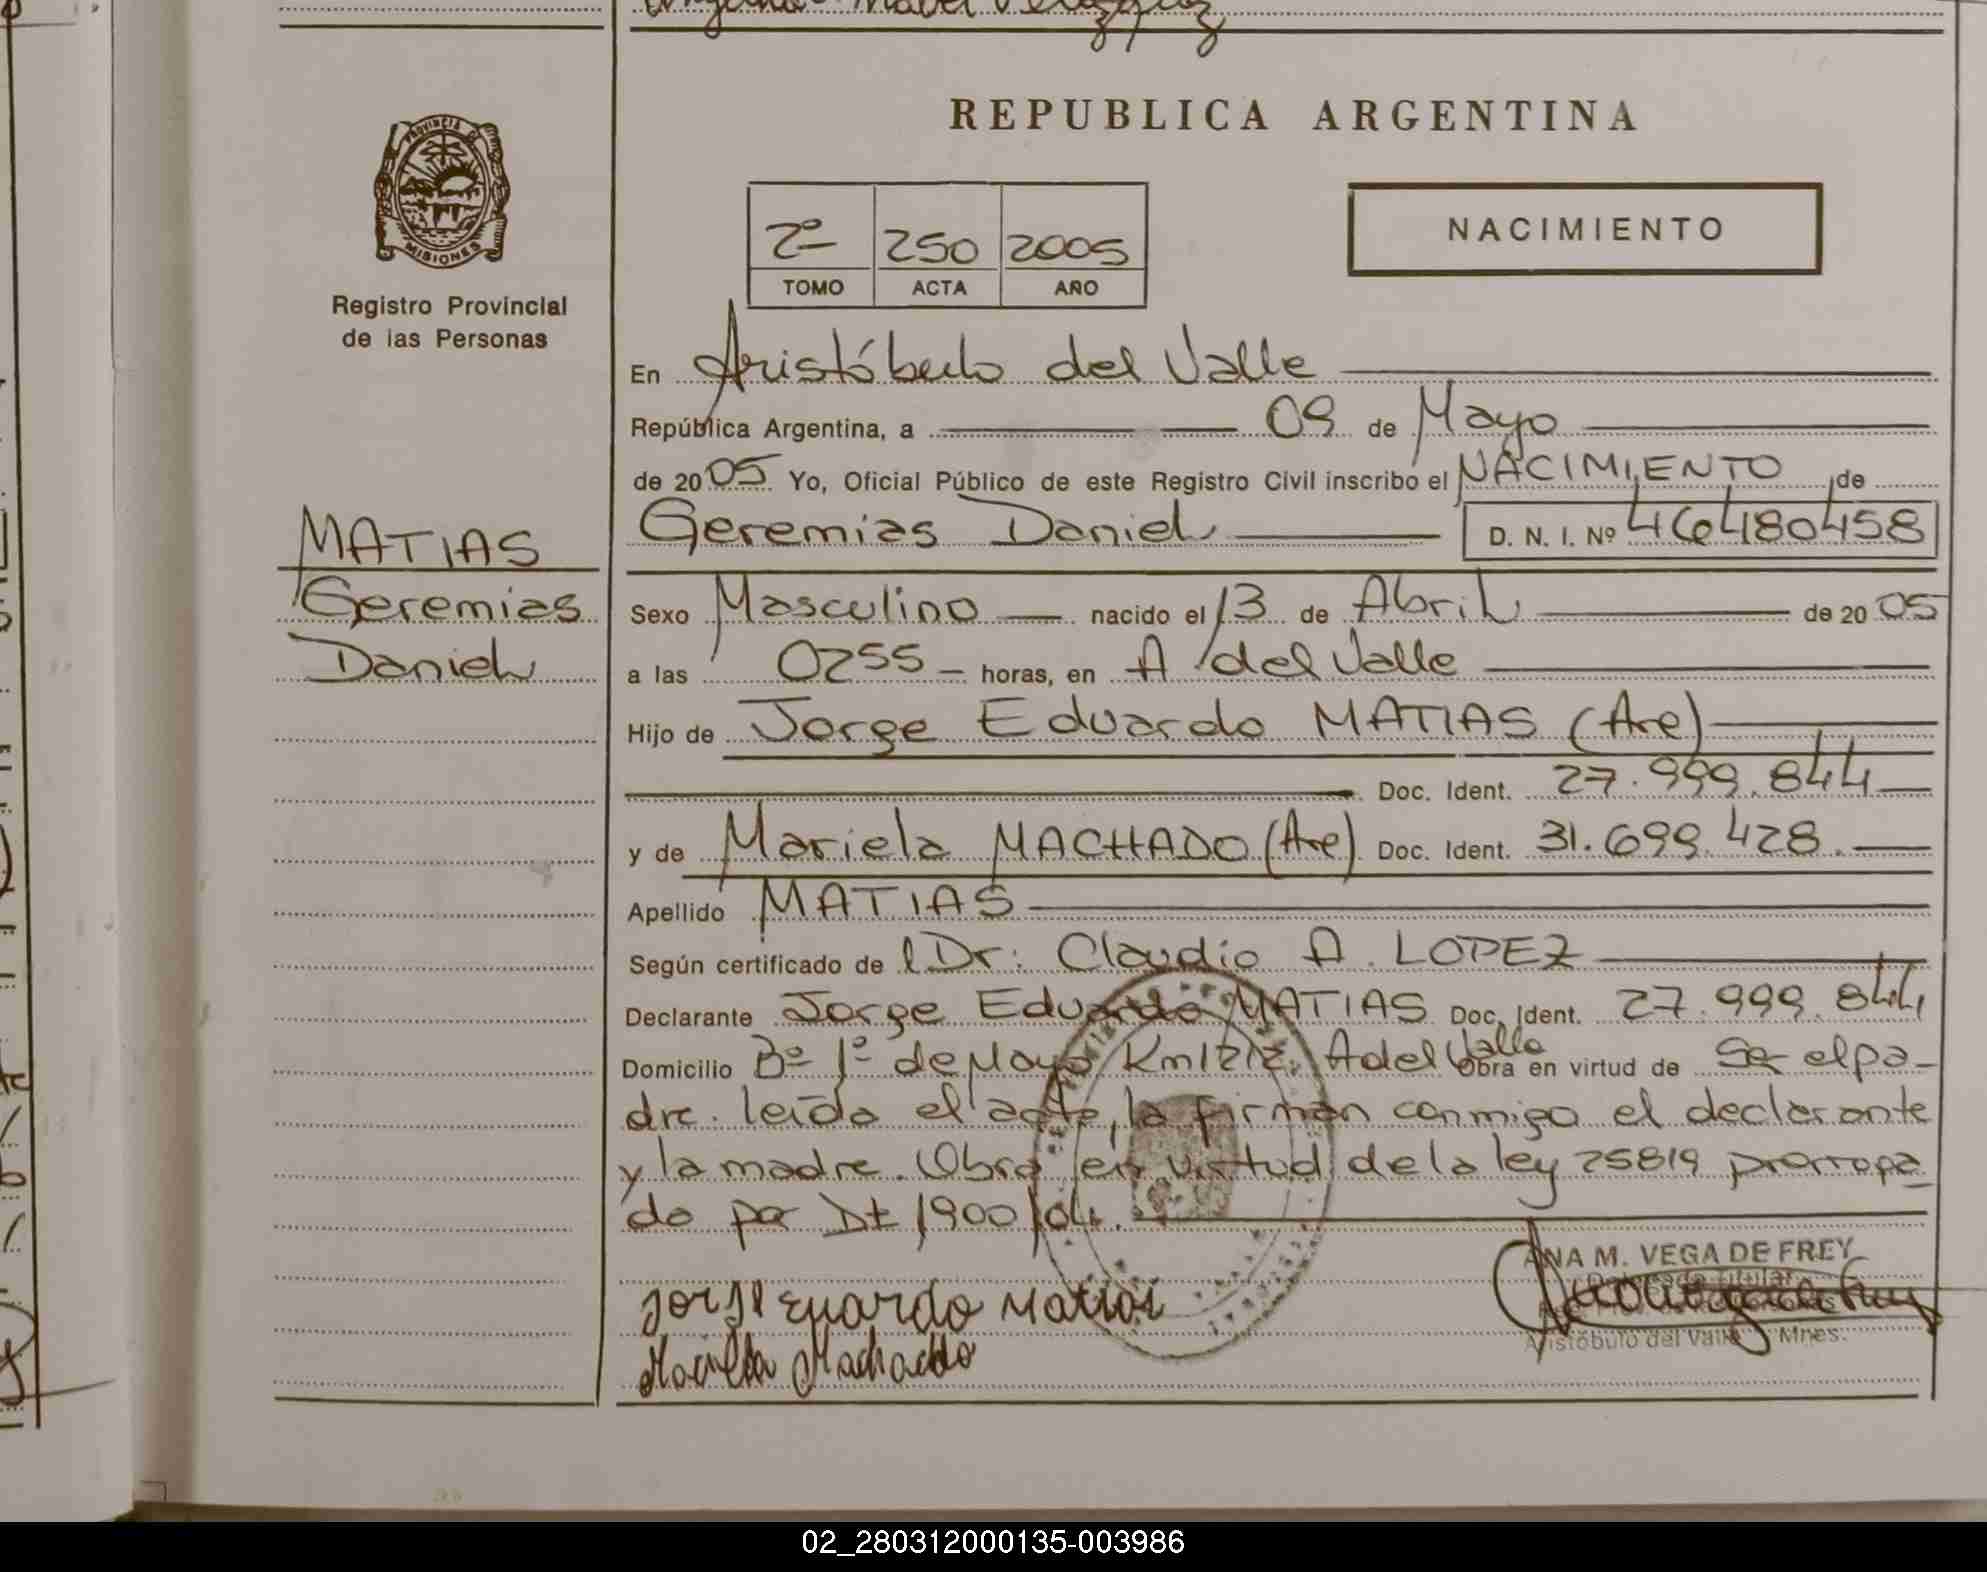 REPUBLICA ARGENTINA
PROVINCIA DE
MISIONES
Registro Provincial
de las Personas
2º 250 2005
TOMO ACTA AÑO
NACIMIENTO
En Aristóbulo del Valle
República Argentina, a 09 de Mayo
de 2005 Yo, Oficial Público de este Registro Civil inscribo el NACIMIENTO de
Geremias Daniel D. N. I. Nº 46480458
MATIAS
Geremias
Daniel
Sexo Masculino nacido el 13 de Abril de 2005
a las 0255 horas, en A del Valle
Hijo de Jorge Eduardo MATIAS (Are)
Doc. Ident. 27.999.844
y de Mariela MACHADO (Are) Doc. Ident. 31.699.428.
Apellido MATIAS
Según certificado de l Dr. Claudio A. LOPEZ
Declarante Jorge Eduardo MATIAS Doc. Ident. 27.999.844
Domicilio Bº 1º de Mayo Km 1212. A del Valle Obra en virtud de Ser el pa-
dre. leída el acta, la firman conmigo el declarante
y la madre. Obra en virtud de la ley 25819 prorroga
do por Dt 1900/04.
ANA M. VEGA DE FREY
Delegada Titular
Aristóbulo del Valle Mnes.
Jorje Euardo Matias
Mariela Machado
02_280312000135-003986